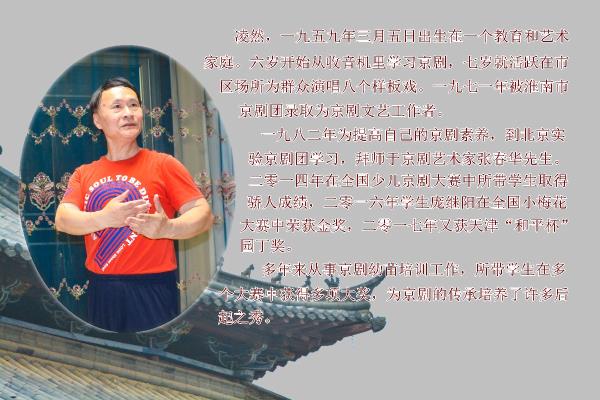 凌然，一九五九年三月五日出生在一个教育和艺术
家庭。六岁开始从收音机里学习京剧，七岁就活跃在市
区场所为群众演唱八个样板戏。一九七一年被淮南市
京剧团录取为京剧文艺工作者。
一九八二年为提高自己的京剧素养，到北京实
验京剧团学习，拜师于京剧艺术家张春华先生。
二零一四年在全国少儿京剧大赛中所带学生取得
骄人成绩，二零一六年学生庞继阳在全国小梅花
大赛中荣获金奖，二零一七年又获天津“和平杯”
园丁奖。
多年来从事京剧幼苗培训工作，所带学生在多
个大赛中获得多项大奖，为京剧的传承培养了许多后
起之秀。
SOUL TO BE DI